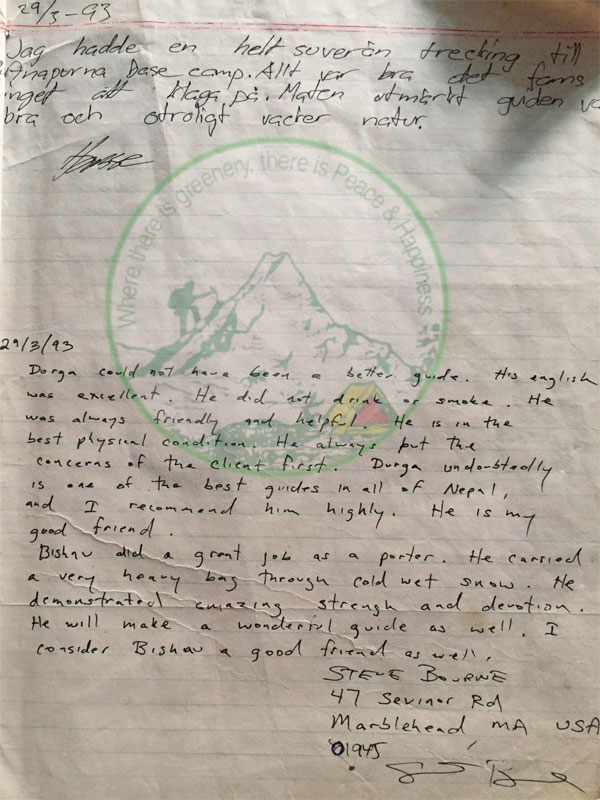 29/3-93
Jag hadde en helt suverän trecking till
Anapurna base camp. Allt var bra det fanns
inget att klaga på. Maten utmärkt guiden va
bra och otroligt vacker natur.
Where there is greenery, there is Peace & Happiness
29/3/93
Durga could not have been a better guide. His english
was excellent. He did not drink or smoke. He
was always friendly and helpful. He is in the
best physical condition. He always put the
concerns of the client first. Durga undoubtedly
is one of the best guides in all of Nepal,
and I recommend him highly. He is my
good friend.
Bishnu did a great job as a porter. He carried
a very heavy bag through cold wet snow. He
demonstrated amazing strengh and devotion.
He will make a wonderful guide as well. I
consider Bishnu a good friend as well.
STEVE BOURNE
47 Sevinor Rd
Marblehead MA USA
01945